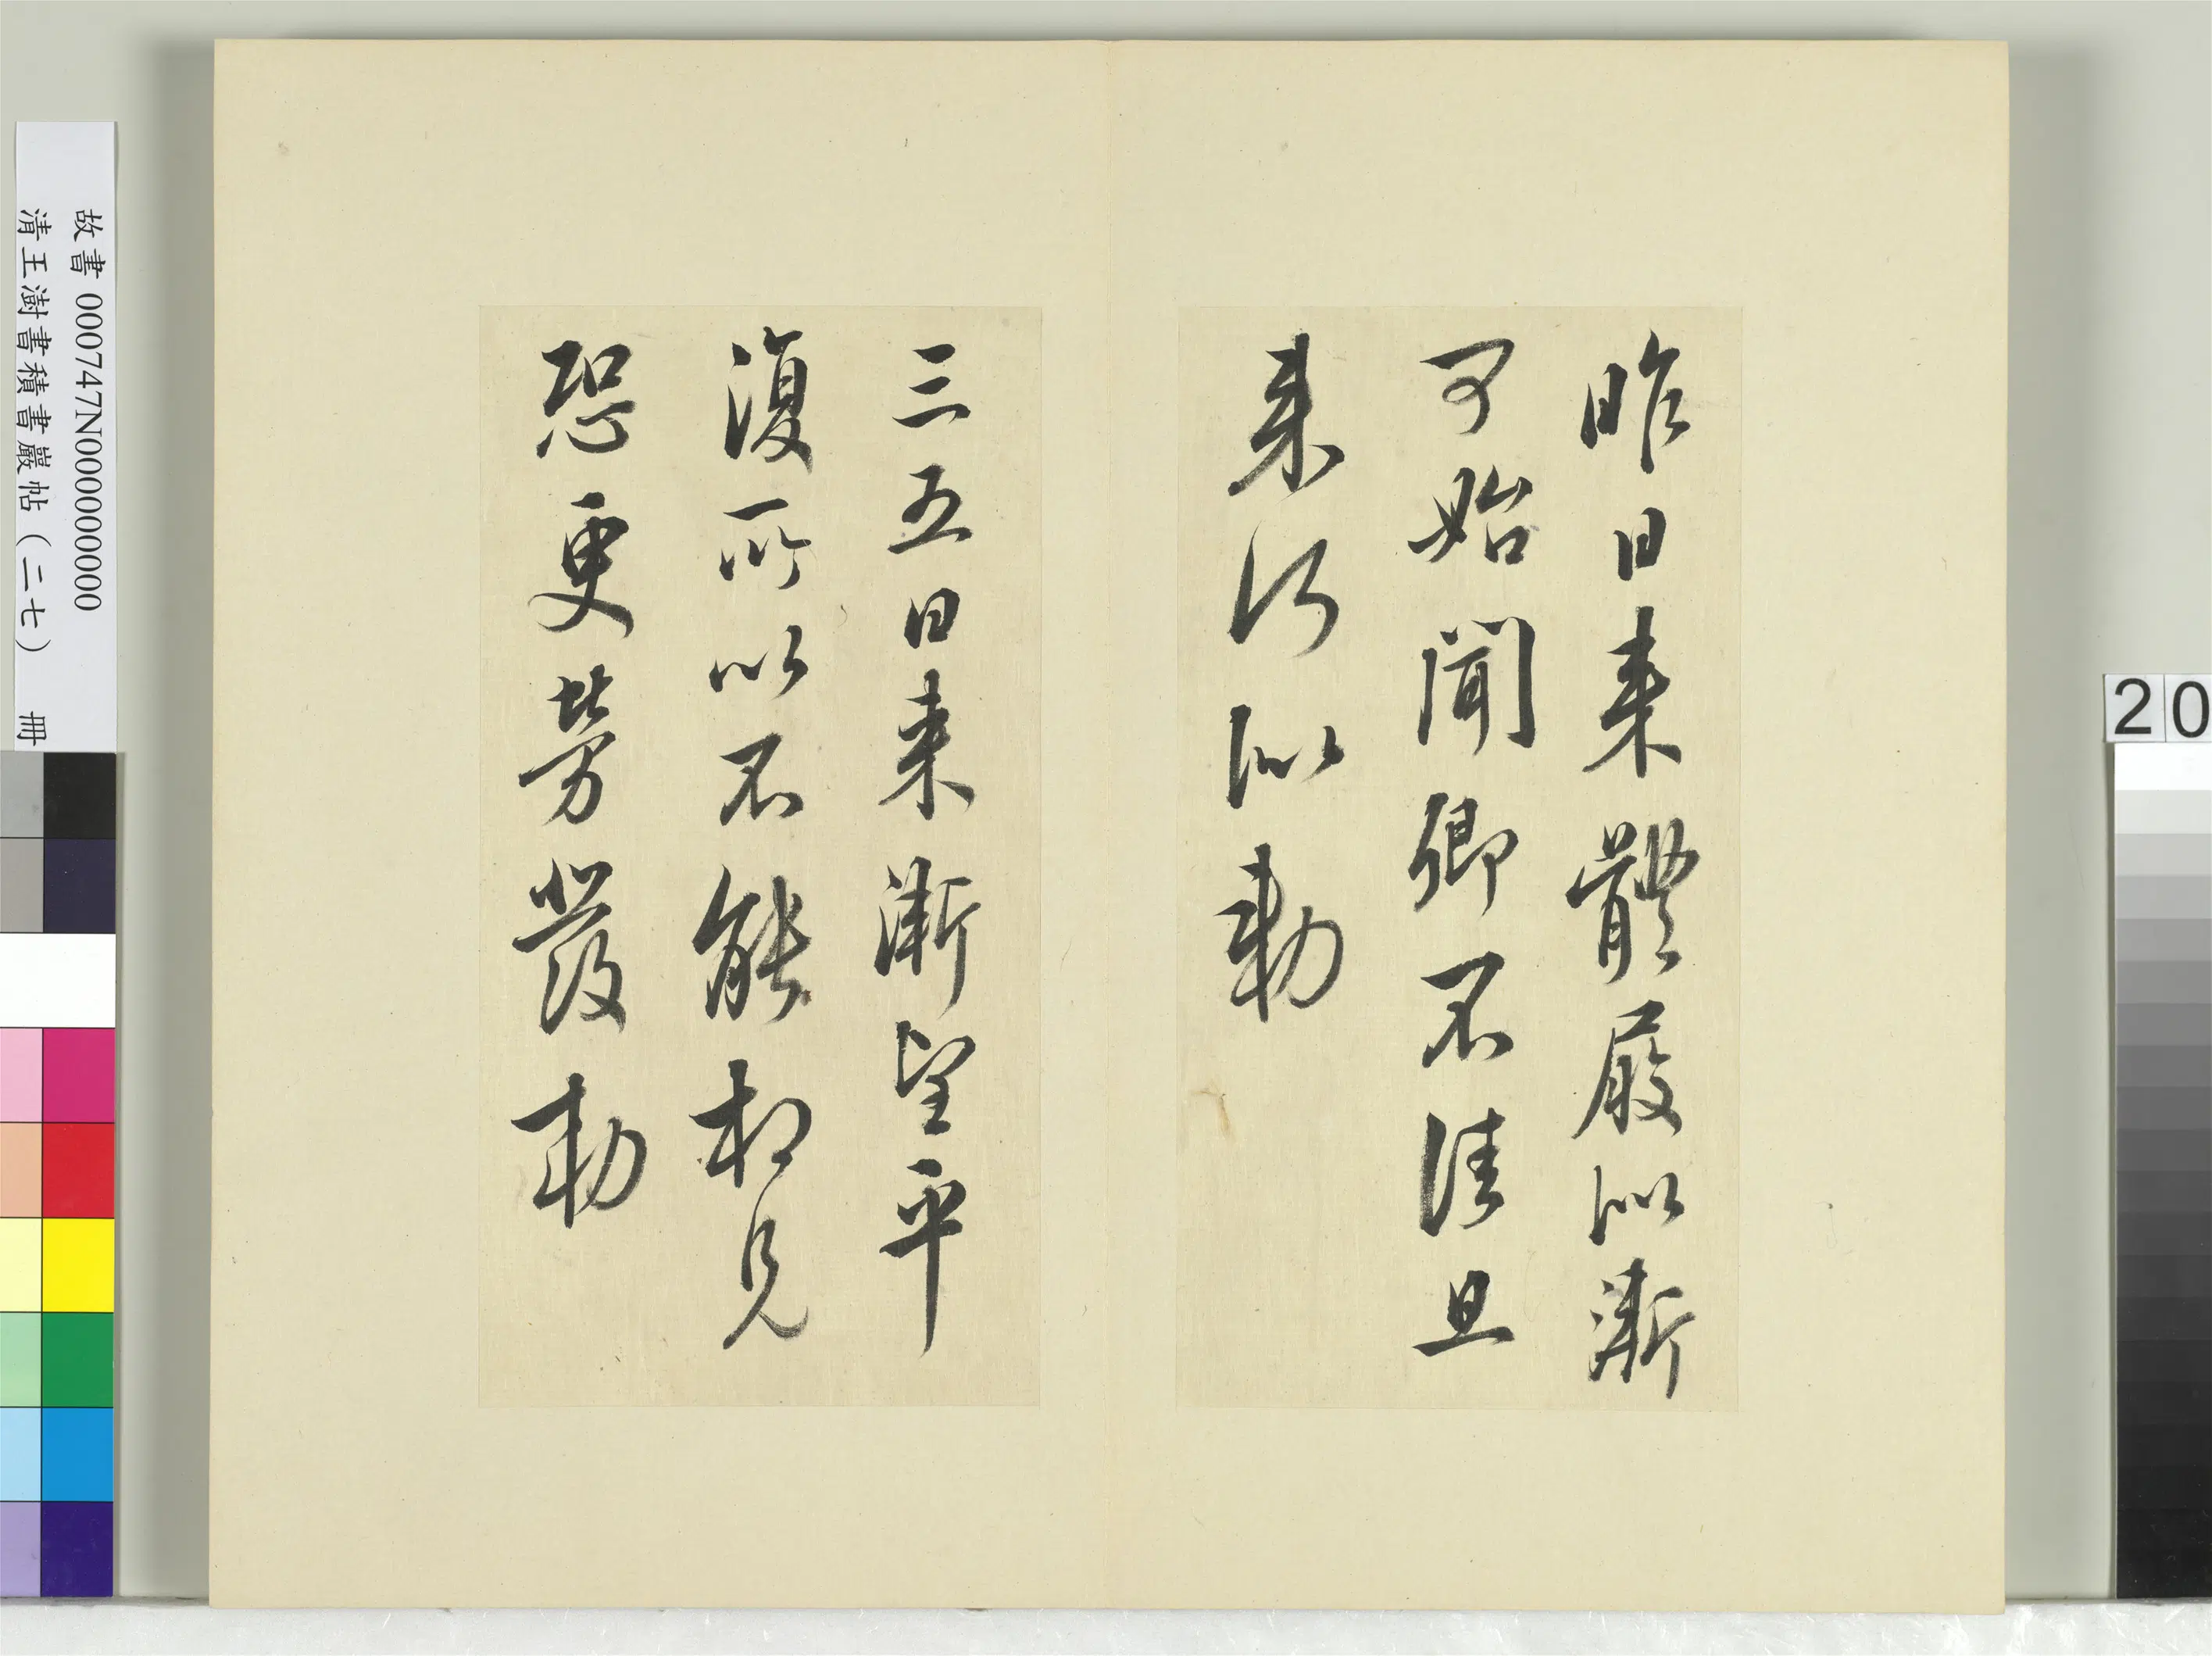 昨日来體履似漸
可始聞卿不佳旦
来何似勅
三五日来漸望平
復所以不能相見
恐更勞發勅
故書 000747N000000000
清王澍書積書巖帖（二七） 冊
20